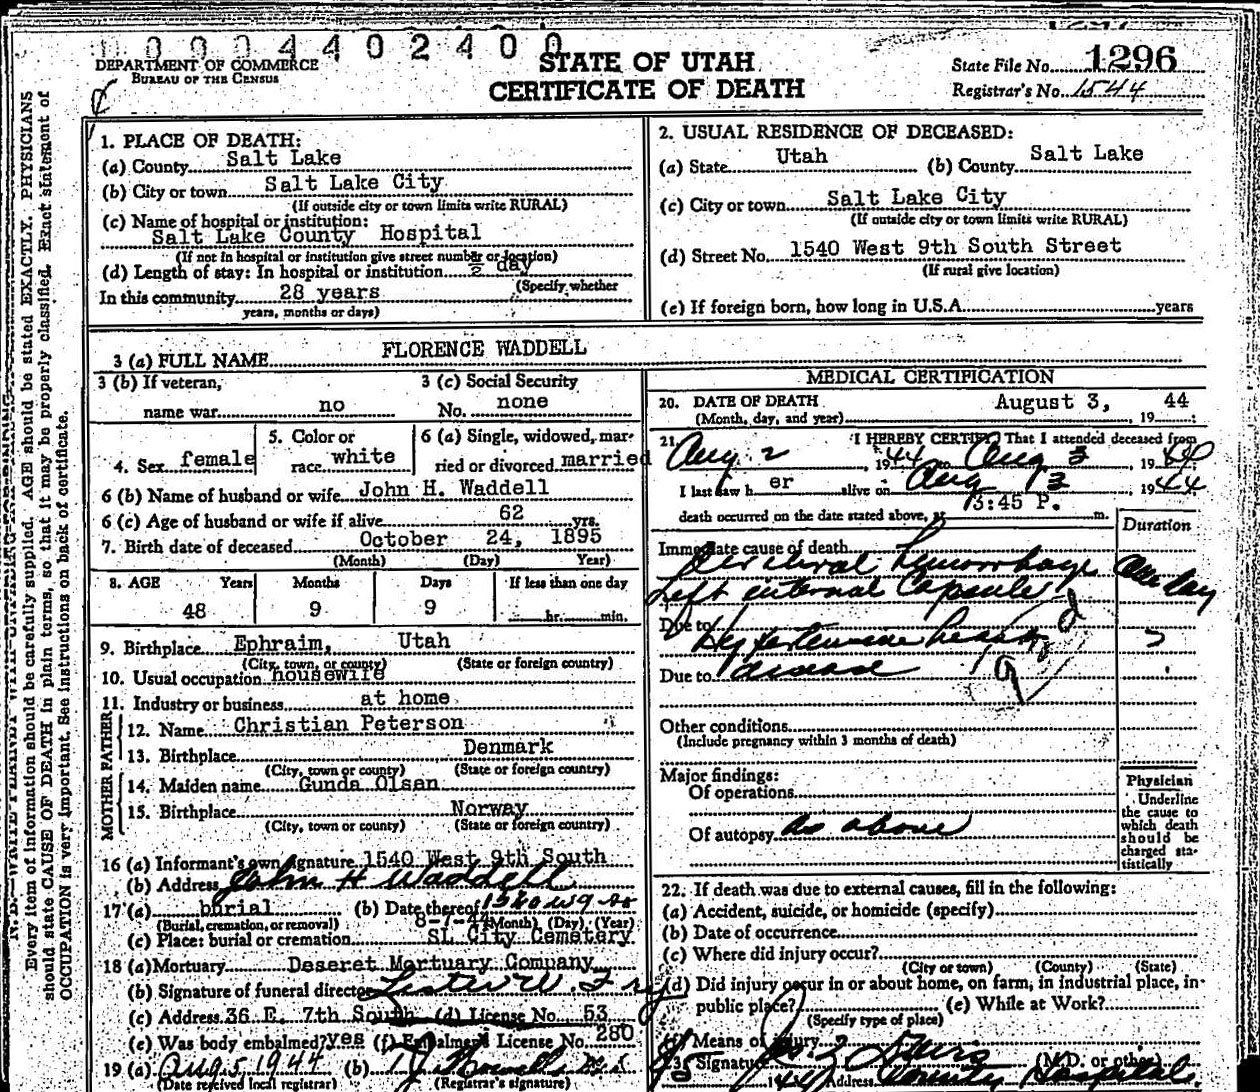 0 0 0 4 4 0 2 4 0 0
DEPARTMENT OF COMMERCE
BUREAU OF THE CENSUS
STATE OF UTAH
CERTIFICATE OF DEATH
State File No. 1296
Registrar's No. 1544
Every item of information should be carefully supplied. AGE should be stated EXACTLY. PHYSICIANS
should state CAUSE OF DEATH in plain terms, so that it may be properly classified. Exact statement of
OCCUPATION is very important. See instructions on back of certificate.
1. PLACE OF DEATH:
(a) County Salt Lake
(b) City or town Salt Lake City
(If outside city or town limits write RURAL)
(c) Name of hospital or institution:
Salt Lake County Hospital
(If not in hospital or institution give street number or location)
(d) Length of stay: In hospital or institution ½ day
(Specify whether
In this community 28 years
years, months or days)
2. USUAL RESIDENCE OF DECEASED:
(a) State Utah (b) County Salt Lake
(c) City or town Salt Lake City
(If outside city or town limits write RURAL)
(d) Street No. 1540 West 9th South Street
(If rural give location)
(e) If foreign born, how long in U.S.A. years
3 (a) FULL NAME FLORENCE WADDELL
3 (b) If veteran, 3 (c) Social Security
name war no No. none
4. Sex female 5. Color or race white 6 (a) Single, widowed, married or divorced married
6 (b) Name of husband or wife John H. Waddell
6 (c) Age of husband or wife if alive 62 yrs.
7. Birth date of deceased October 24, 1895
(Month) (Day) Year)
8. AGE Years Months Days If less than one day
48 9 9 hr. min.
9. Birthplace Ephraim, Utah
(City, town, or county) (State or foreign country)
10. Usual occupation housewife
11. Industry or business at home
FATHER
12. Name Christian Peterson
13. Birthplace Denmark
(City, town or county) (State or foreign country)
MOTHER
14. Maiden name Gunda Olsen
15. Birthplace Norway
(City, town or county) (State or foreign country)
16 (a) Informant's own signature 1540 West 9th South
(b) Address John H Waddell
1540 W 9 So
17 (a) burial (b) Date thereof 8-7-44
(Burial, cremation, or removal) (Month) (Day) (Year)
(c) Place: burial or cremation SL City Cemetery
18 (a) Mortuary Deseret Mortuary Company
(b) Signature of funeral director Lester W. Fry
(c) Address 36 E. 7th South (d) License No. 53
(e) Was body embalmed? yes (f) Embalmer's License No. 280
19 (a) Aug 5, 1944 (b)
(Date received local registrar) (Registrar's signature)
MEDICAL CERTIFICATION
20. DATE OF DEATH August 3, 19 44
(Month, day, and year)
21. I HEREBY CERTIFY That I attended deceased from
Aug. 2 1944 to Aug 3 19 44
I last saw h er alive on Aug 3 1944
death occurred on the date stated above, at 3:45 P. m.
Duration
Immediate cause of death
Cerebral hemorrhage One day
Left internal capsule
Due to Hypertensive heart ?
disease
Due to
Other conditions
(Include pregnancy within 3 months of death)
Major findings:
Of operations
Of autopsy as above
Physician
Underline the cause to which death should be charged statistically
22. If death was due to external causes, fill in the following:
(a) Accident, suicide, or homicide (specify)
(b) Date of occurrence
(c) Where did injury occur?
(City or town) (County) (State)
(d) Did injury occur in or about home, on farm, in industrial place, in
public place? (e) While at Work?
(Specify type of place)
(f) Means of injury
23 Signature (M.D. or other)
Address County Hospital